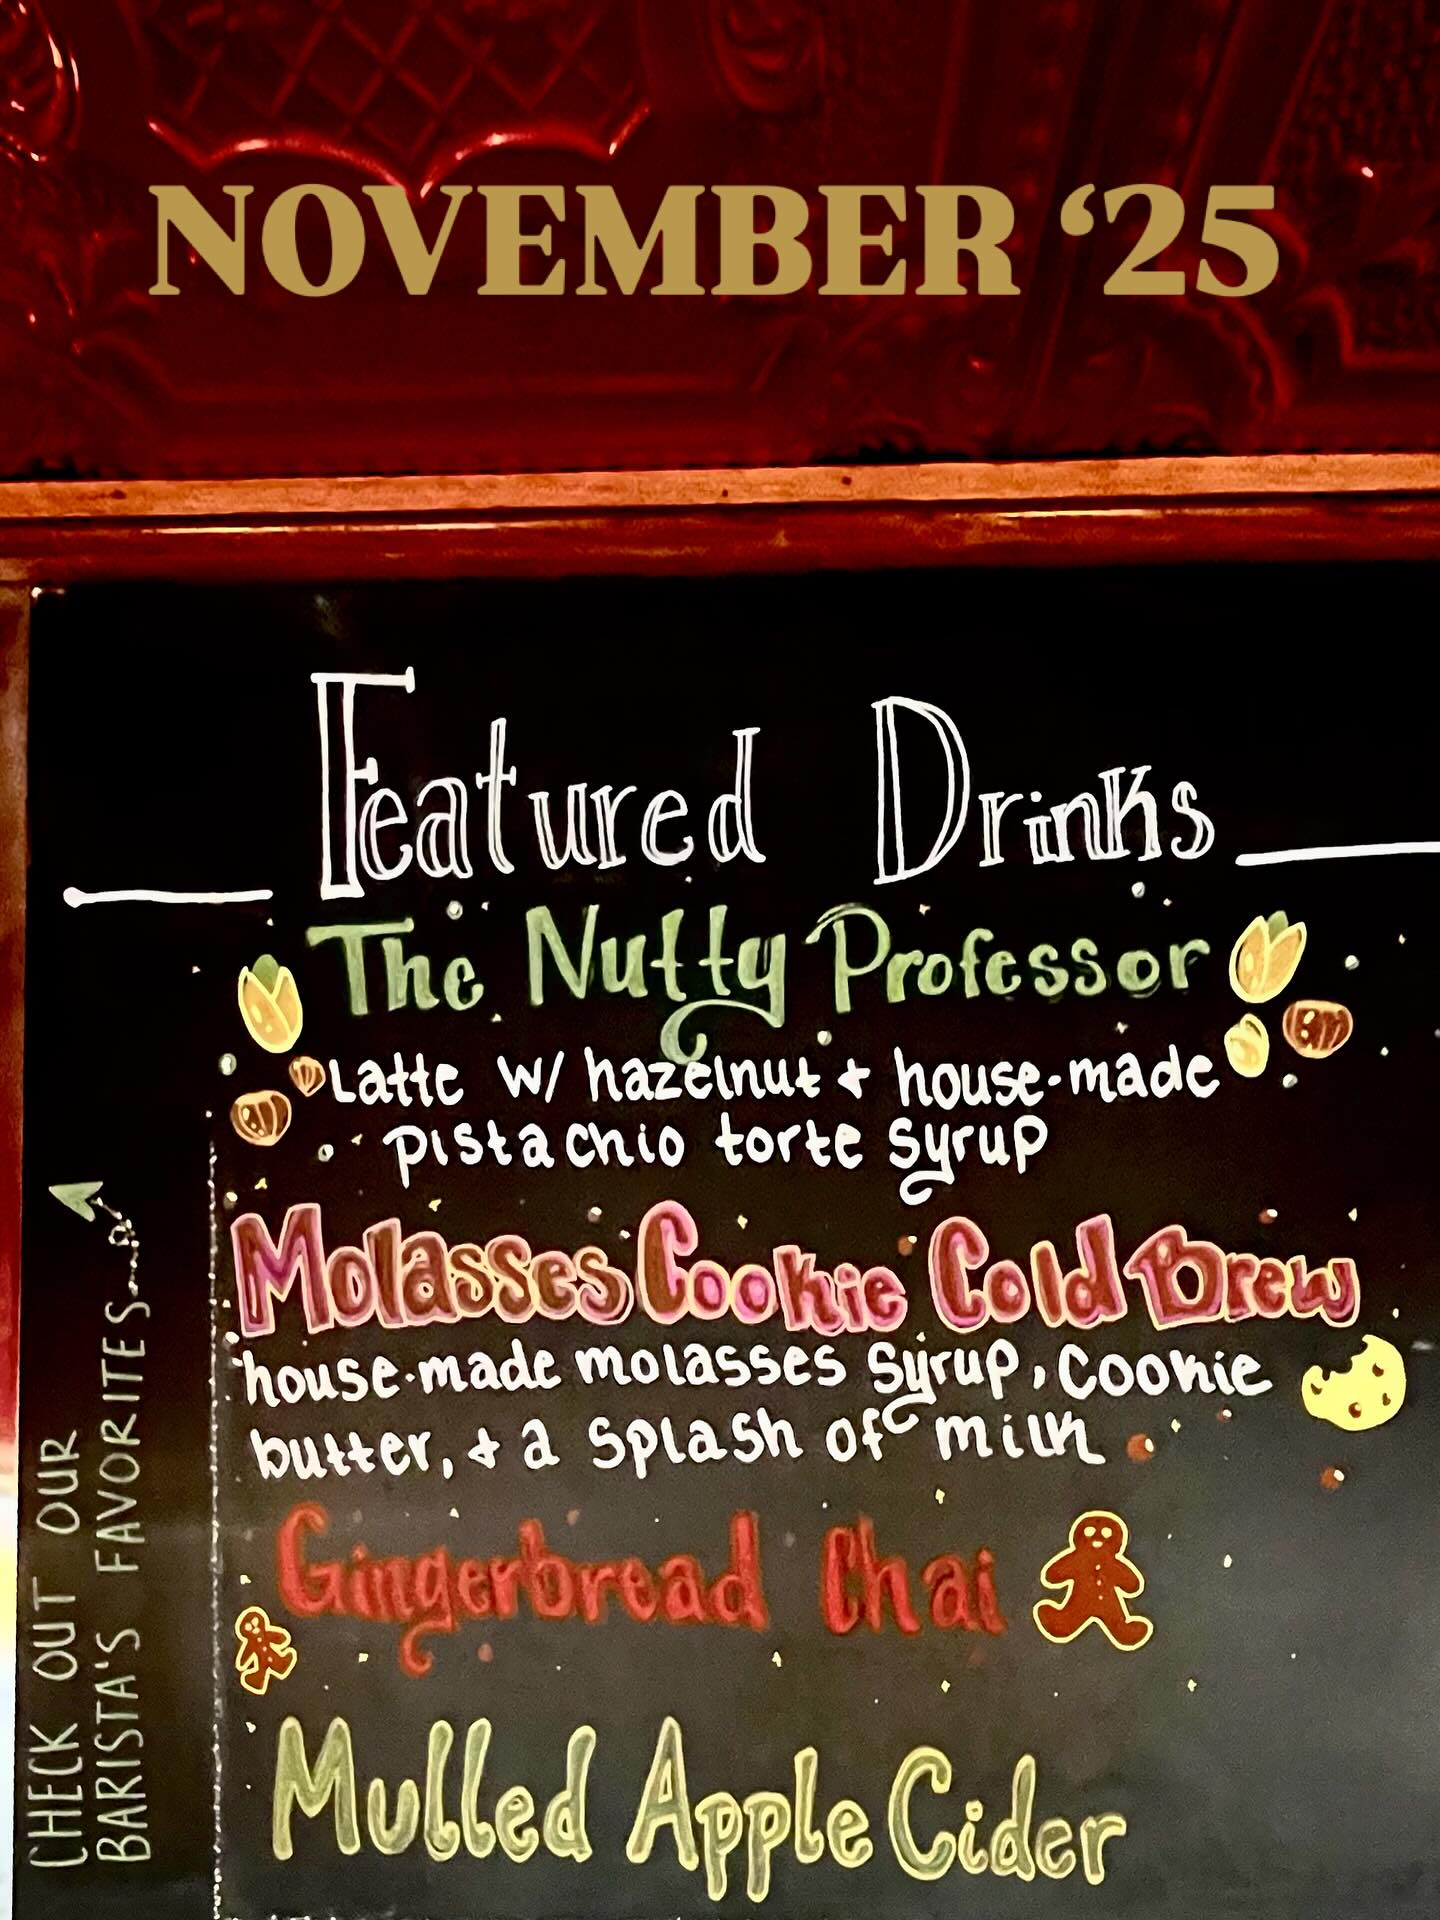 NOVEMBER ‘25
Featured Drinks
The Nutty Professor
Latte w/ hazelnut + house-made
pistachio torte syrup
Molasses Cookie Cold Brew
house-made molasses syrup, cookie
butter, + a splash of milk
Gingerbread Chai
Mulled Apple Cider
CHECK OUT OUR
BARISTA'S FAVORITES